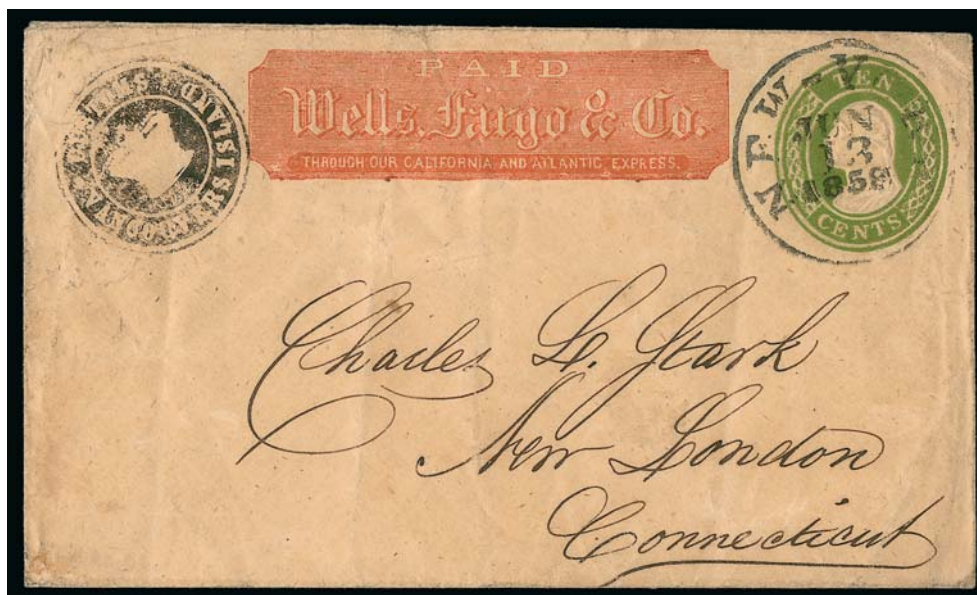 PAID
Wells, Fargo & Co.
THROUGH OUR CALIFORNIA AND ATLANTIC EXPRESS.
VANCOUVERS ISLAND.
NEW-Y
JUN
13
1859
TEN
CENTS
Charles L. Stark
New London
Connecticut